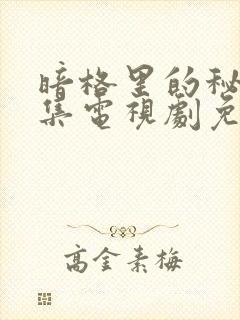 暗格里的秘
集電視劇免
高金素梅